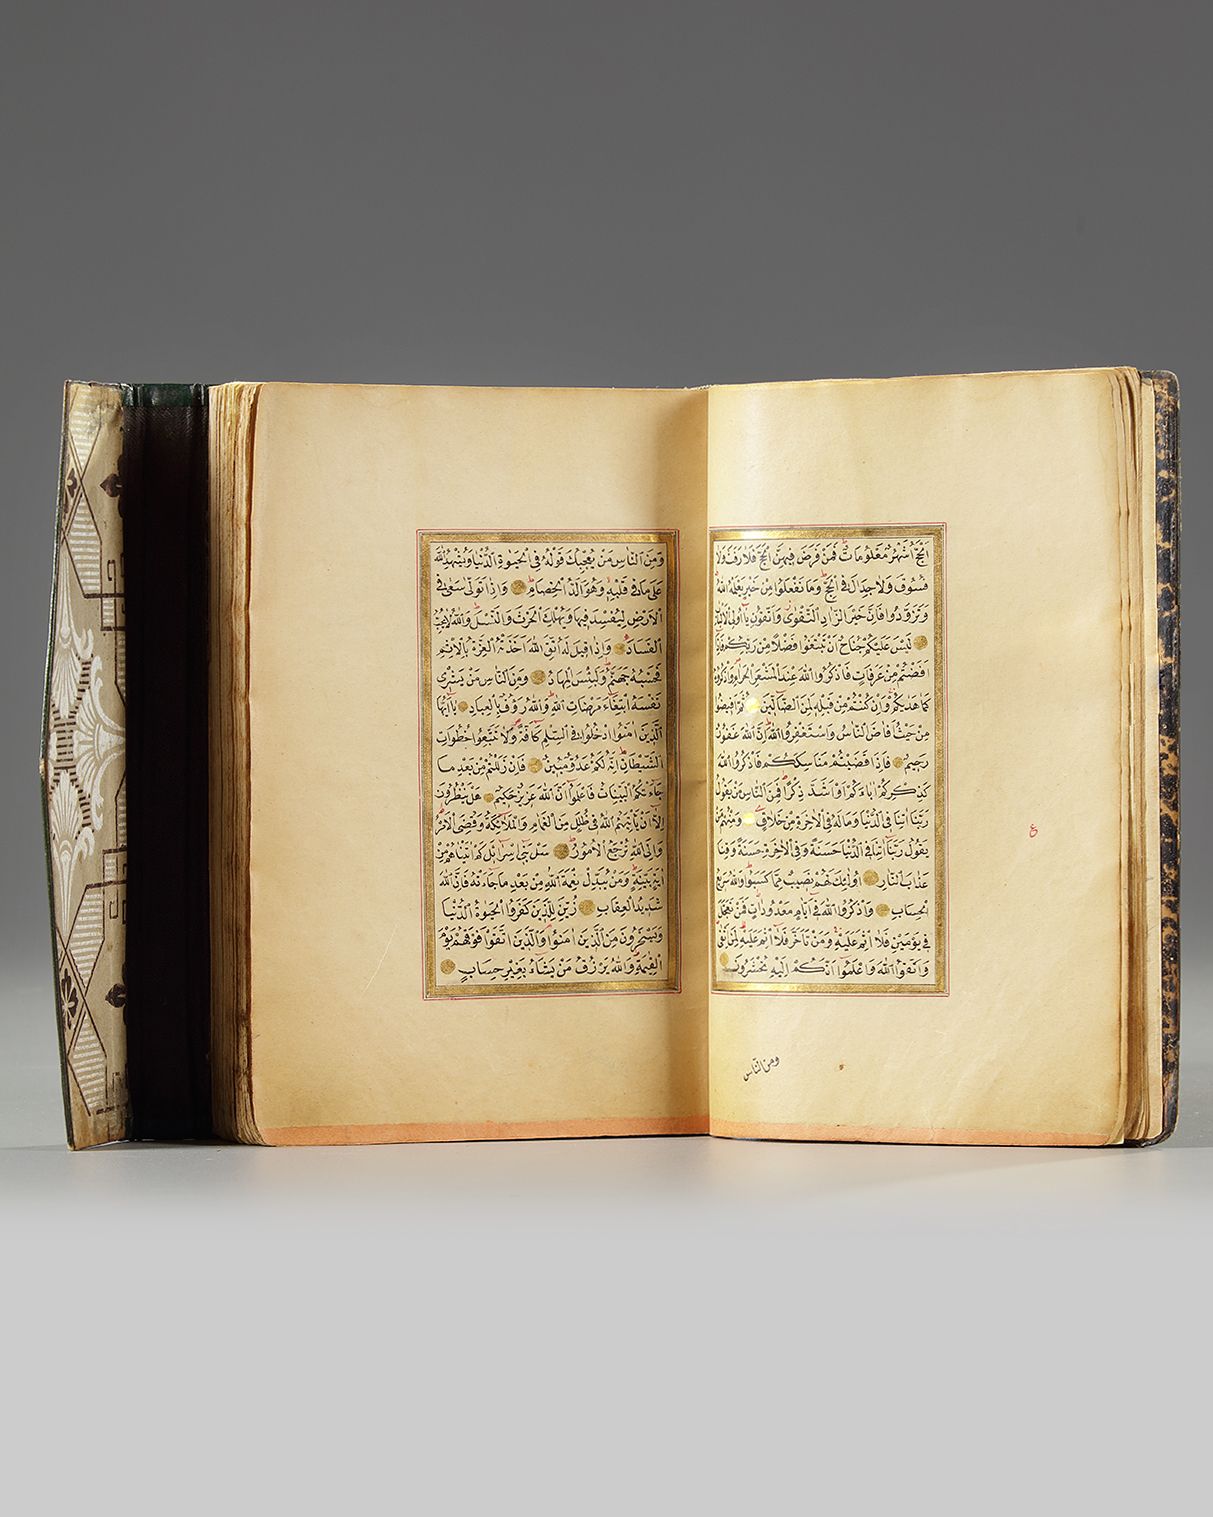 اَلْحَجُّ اَشْهُرٌ مَعْلُومَاتٌ فَمَنْ فَرَضَ فِيهِنَّ الْحَجَّ فَلَا رَفَثَ وَلَا
فُسُوقَ وَلَا جِدَالَ فِي الْحَجِّ وَمَا تَفْعَلُوا مِنْ خَيْرٍ يَعْلَمْهُ اللّٰهُ
وَتَزَوَّدُوا فَاِنَّ خَيْرَ الزَّادِ التَّقْوٰى وَاتَّقُونِ يَا اُولِي الْاَلْبَابِ
لَيْسَ عَلَيْكُمْ جُنَاحٌ اَنْ تَبْتَغُوا فَضْلًا مِنْ رَبِّكُمْ فَاِذَا
اَفَضْتُمْ مِنْ عَرَفَاتٍ فَاذْكُرُوا اللّٰهَ عِنْدَ الْمَشْعَرِ الْحَرَامِ وَاذْكُرُوهُ
كَمَا هَدٰيكُمْ وَاِنْ كُنْتُمْ مِنْ قَبْلِهِ لَمِنَ الضَّالِّينَ ثُمَّ اَفِيضُوا
مِنْ حَيْثُ اَفَاضَ النَّاسُ وَاسْتَغْفِرُوا اللّٰهَ اِنَّ اللّٰهَ غَفُورٌ
رَحِيمٌ فَاِذَا قَضَيْتُمْ مَنَاسِكَكُمْ فَاذْكُرُوا اللّٰهَ
كَذِكْرِكُمْ اٰبَاءَكُمْ اَوْ اَشَدَّ ذِكْرًا فَمِنَ النَّاسِ مَنْ يَقُولُ
رَبَّنَا اٰتِنَا فِي الدُّنْيَا وَمَا لَهُ فِي الْاٰخِرَةِ مِنْ خَلَاقٍ وَمِنْهُمْ مَنْ
يَقُولُ رَبَّنَا اٰتِنَا فِي الدُّنْيَا حَسَنَةً وَفِي الْاٰخِرَةِ حَسَنَةً وَقِنَا
عَذَابَ النَّارِ اُولٰئِكَ لَهُمْ نَصِيبٌ مِمَّا كَسَبُوا وَاللّٰهُ سَرِيعُ
الْحِسَابِ وَاذْكُرُوا اللّٰهَ فِي اَيَّامٍ مَعْدُودَاتٍ فَمَنْ تَعَجَّلَ
فِي يَوْمَيْنِ فَلَا اِثْمَ عَلَيْهِ وَمَنْ تَاَخَّرَ فَلَا اِثْمَ عَلَيْهِ لِمَنِ اتَّقٰى
وَاتَّقُوا اللّٰهَ وَاعْلَمُوا اَنَّكُمْ اِلَيْهِ تُحْشَرُونَ
ع
ومن الناس
وَمِنَ النَّاسِ مَنْ يُعْجِبُكَ قَوْلُهُ فِي الْحَيٰوةِ الدُّنْيَا وَيُشْهِدُ اللّٰهَ
عَلٰى مَا فِي قَلْبِهِ وَهُوَ اَلَدُّ الْخِصَامِ وَاِذَا تَوَلّٰى سَعٰى فِي
الْاَرْضِ لِيُفْسِدَ فِيهَا وَيُهْلِكَ الْحَرْثَ وَالنَّسْلَ وَاللّٰهُ لَا يُحِبُّ
الْفَسَادَ وَاِذَا قِيلَ لَهُ اتَّقِ اللّٰهَ اَخَذَتْهُ الْعِزَّةُ بِالْاِثْمِ
فَحَسْبُهُ جَهَنَّمُ وَلَبِئْسَ الْمِهَادُ وَمِنَ النَّاسِ مَنْ يَشْرِي
نَفْسَهُ ابْتِغَاءَ مَرْضَاتِ اللّٰهِ وَاللّٰهُ رَؤُفٌ بِالْعِبَادِ يَا اَيُّهَا
الَّذِينَ اٰمَنُوا ادْخُلُوا فِي السِّلْمِ كَافَّةً وَلَا تَتَّبِعُوا خُطُوَاتِ
الشَّيْطَانِ اِنَّهُ لَكُمْ عَدُوٌّ مُبِينٌ فَاِنْ زَلَلْتُمْ مِنْ بَعْدِ مَا
جَاءَتْكُمُ الْبَيِّنَاتُ فَاعْلَمُوا اَنَّ اللّٰهَ عَزِيزٌ حَكِيمٌ هَلْ يَنْظُرُونَ
اِلَّا اَنْ يَاْتِيَهُمُ اللّٰهُ فِي ظُلَلٍ مِنَ الْغَمَامِ وَالْمَلٰئِكَةُ وَقُضِيَ الْاَمْرُ
وَاِلَى اللّٰهِ تُرْجَعُ الْاُمُورُ سَلْ بَنِي اِسْرَائِلَ كَمْ اٰتَيْنَاهُمْ مِنْ
اٰيَةٍ بَيِّنَةٍ وَمَنْ يُبَدِّلْ نِعْمَةَ اللّٰهِ مِنْ بَعْدِ مَا جَاءَتْهُ فَاِنَّ اللّٰهَ
شَدِيدُ الْعِقَابِ زُيِّنَ لِلَّذِينَ كَفَرُوا الْحَيٰوةُ الدُّنْيَا
وَيَسْخَرُونَ مِنَ الَّذِينَ اٰمَنُوا وَالَّذِينَ اتَّقَوْا فَوْقَهُمْ يَوْمَ
الْقِيٰمَةِ وَاللّٰهُ يَرْزُقُ مَنْ يَشَاءُ بِغَيْرِ حِسَابٍ